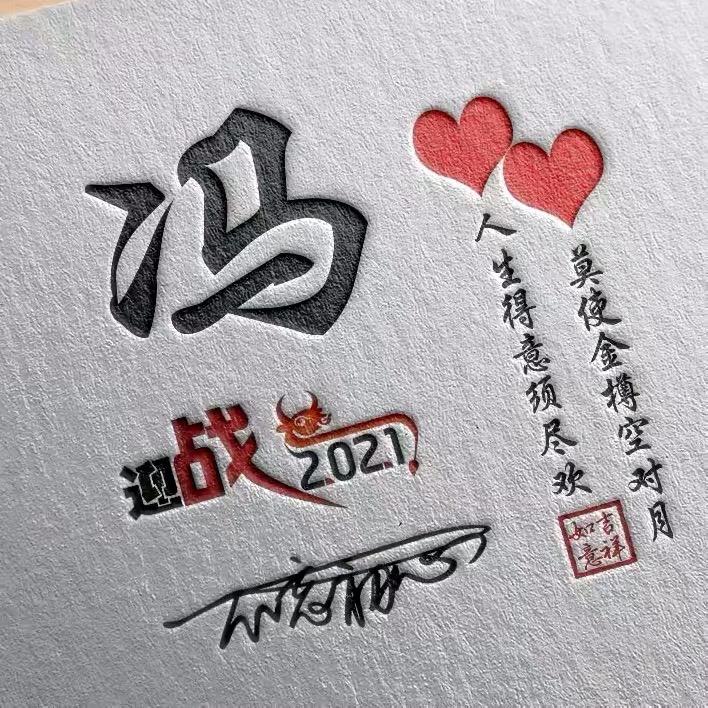 冯
人生得意须尽欢
莫使金樽空对月
吉祥
如意
迎战
2021